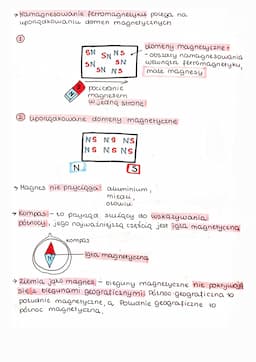 → Namagnesowanie ferromagnetyku polega na
uporządkowaniu domen magnetycznych
①
SN SN NS
SN SN
SN NS
domeny magnetyczne -
- obszary namagnesowania
wewnątrz ferromagnetyku,
małe magnesy
pocieranie
magnesem
w jedną stronę!
② uporządkowane domeny magnetyczne
NS NS NS
NS NS NS
N S
→ Magnes nie przyciąga: aluminium,
miedzi,
ołowiu
→ Kompas - to przyrząd służący do wskazywania
północy, jego najważniejszą częścią jest igła magnetyczna
kompas
N
igła magnetyczna
→ Ziemia jako magnes - bieguny magnetyczne nie pokrywają
się z biegunami geograficznymi. Północ geograficzna to
południe magnetyczne, a Południe geograficzne to
północ magnetyczna.